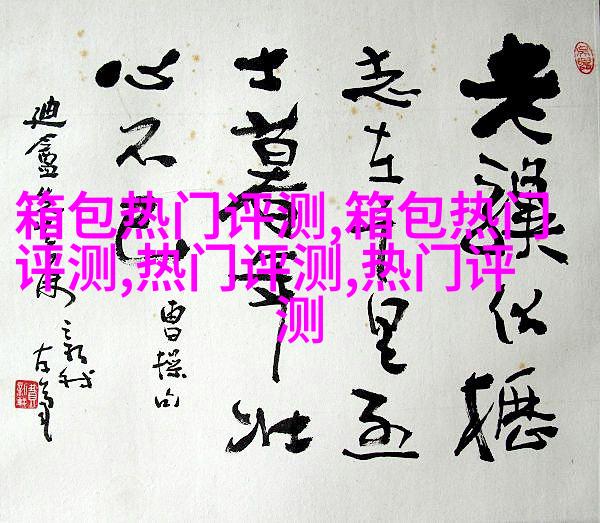 箱包热门评测,箱包热门
评测,热门评测,热门评
测
老驥伏櫪
志在千里烈
士暮年壮
心不已
曹操句